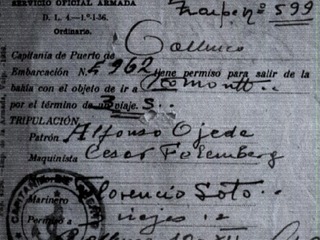 SERVICIO OFICIAL ARMADA
D. L. 4.—1.°1-36.
Ordinario.
Zarpe nº 599
Capitanía de Puerto de Calbuco
Embarcación N.º 962 tiene permiso para salir de la
bahía con el objeto de ir a Pto montt..
por el término de viaje.s..
TRIPULACIÓN:
Patrón Alfonso Ojeda
Maquinista Cesar
Marinero Florencio Soto..
viajes
CAPITANIA DE PUERTO